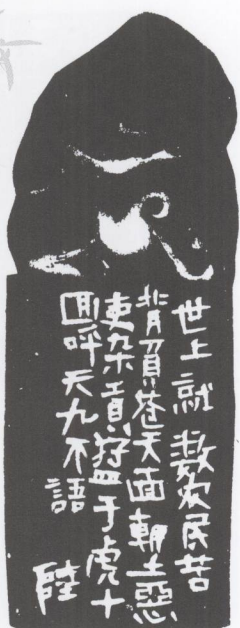 世上就數农民苦
背負苍天面朝土惡
吏杂員猛于虎十
回呼天九不語
陸